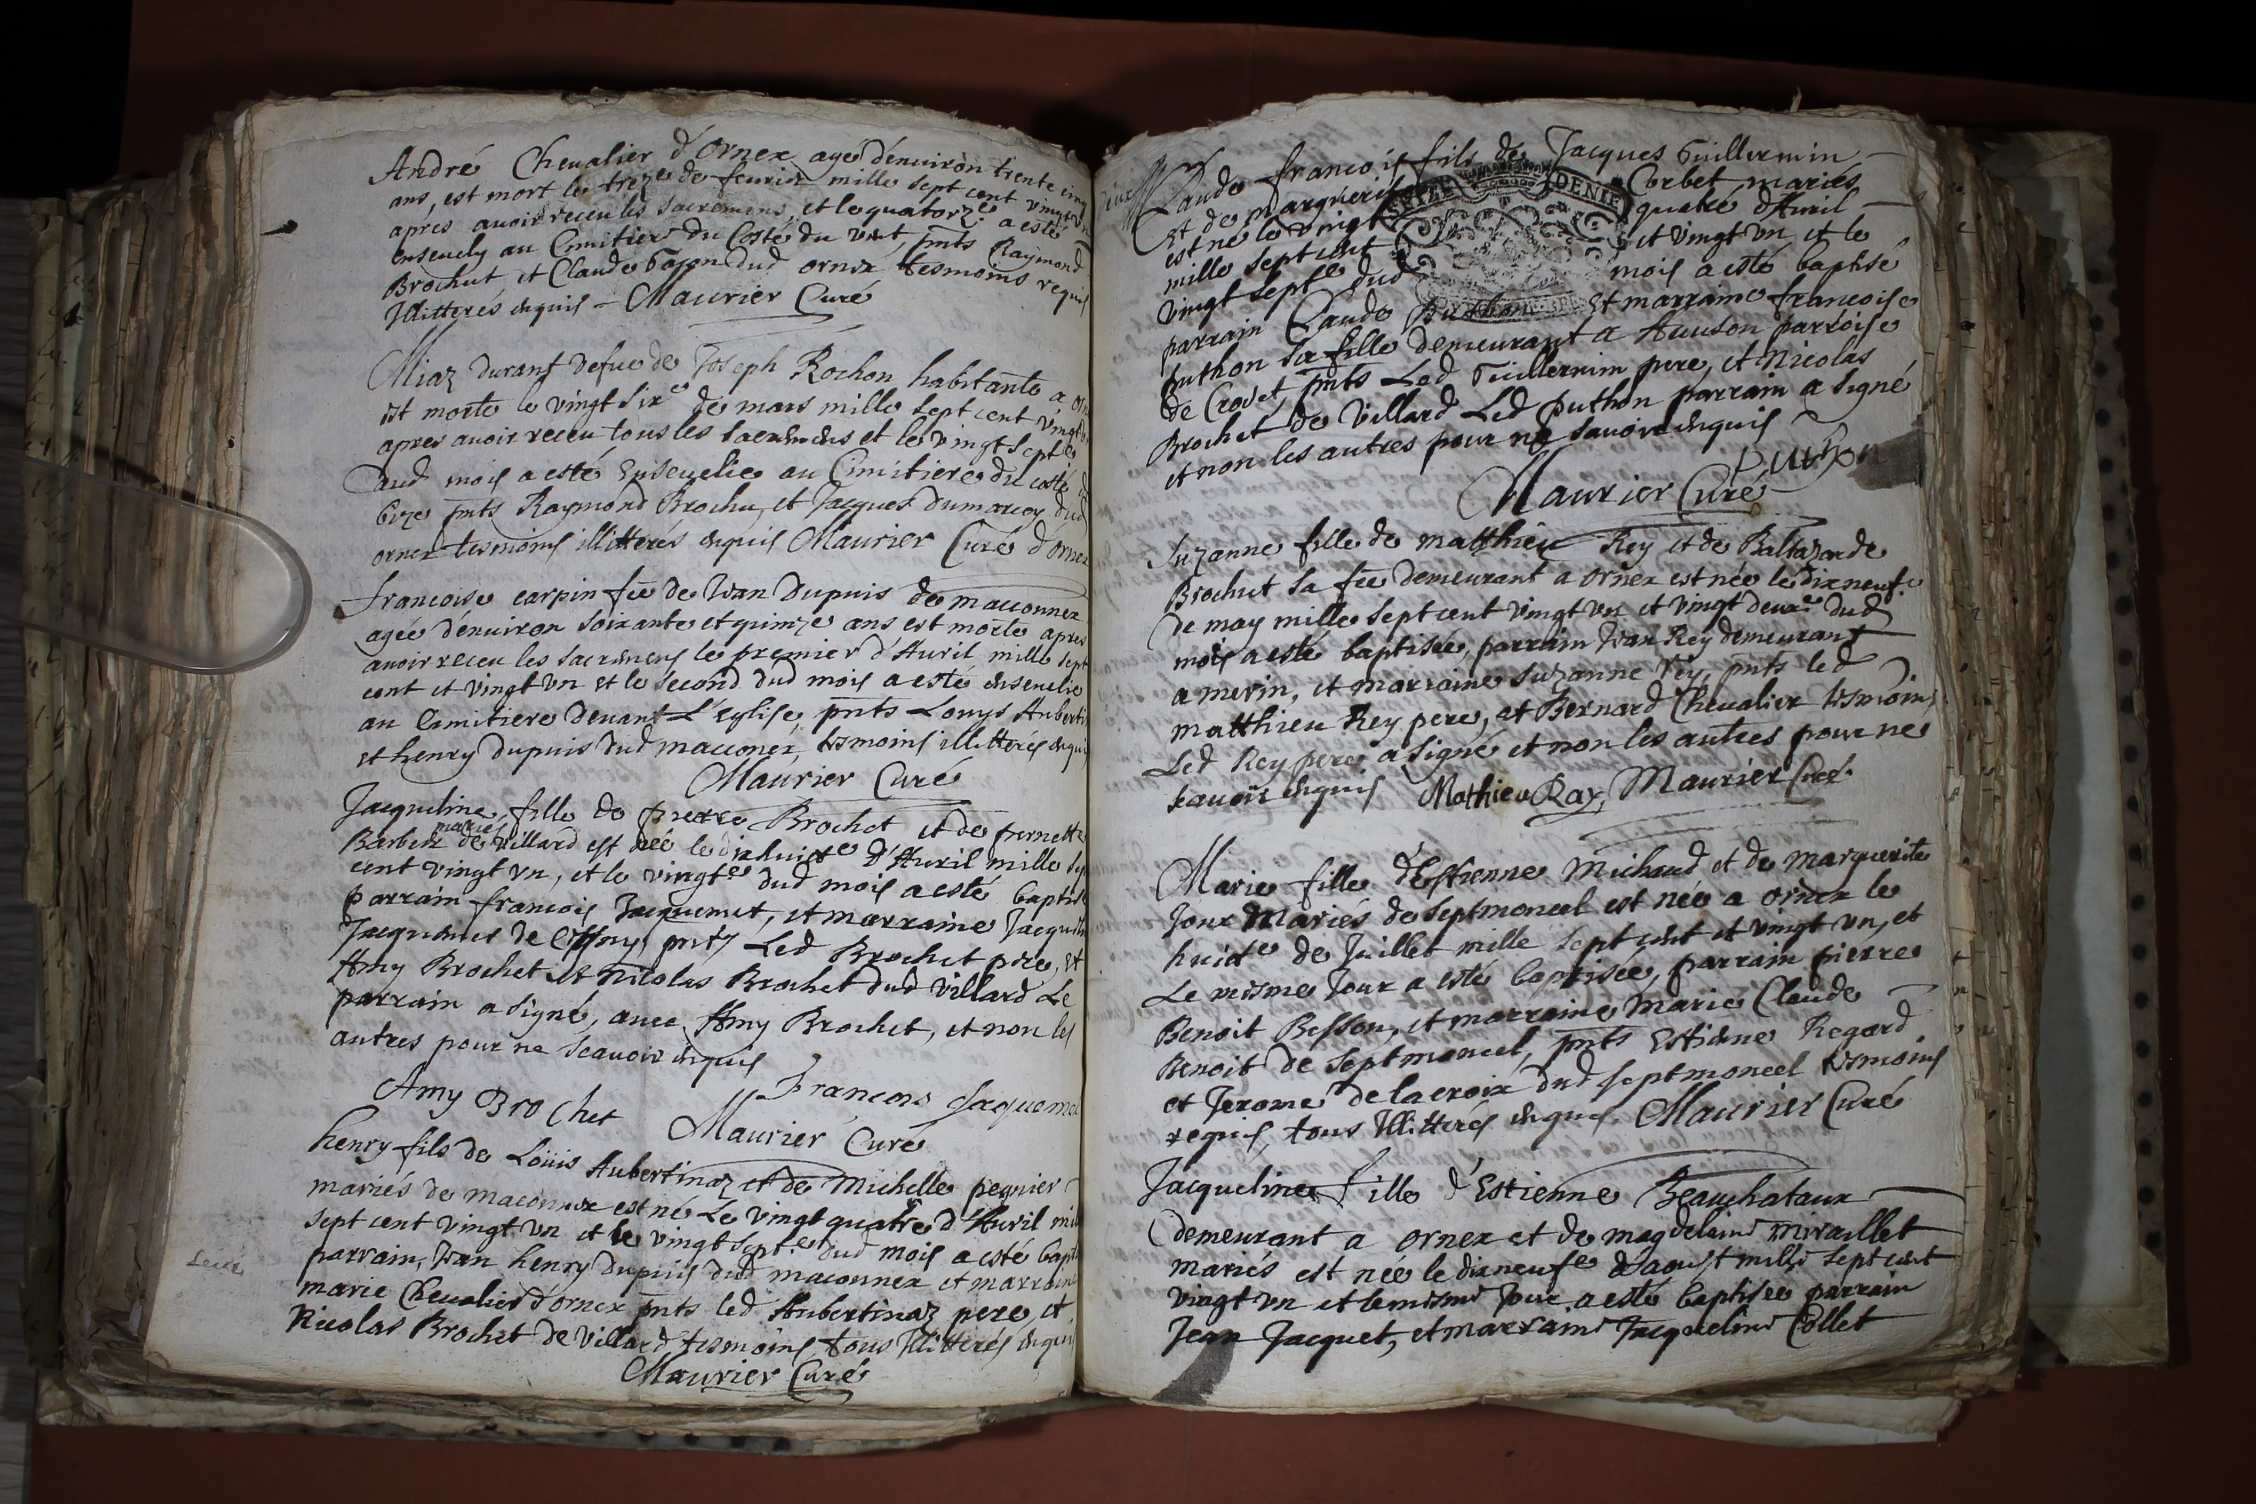 André Chevalier d'Ornex agé d'enuiron trente cinq
ans, est mort le treze de feurier mille sept cent vingt vn
apres auoir receu les sacremens, et le quatorze a esté
enseuely au Cimitiere du Costé du vent, pnts Raymond
Brochut, et Claude dud ornex tesmoins requis
Illitterés enquis – Maurier Curé
Miaz durant defue de Joseph Rochon habitante a
est morte le vingt sixe de mars mille sept cent vingt
apres auoir receu tous les sacremens et le vingt septe
dud mois a esté Enseuelie au Cimitiere du costé
bize pnts Raymond Brochu, et Jacques dumarcey dud
ornex tesmoins illitterés enquis Maurier Curé d'ornex
francoise carpin fee de Wan Dupuis de macconnex
agée d'enuiron soixante et quinze ans est morte apres
auoir receu les sacremens le premier d'Auril mille sept
cent et vingt vn et le second dud mois a esté enseuelie
au Cimitiere deuant L'Eglise, pnts Louys Auberti
et henry dupuis dud macconex, tesmoins illitterés enquis
Maurier Curé
Jacqueline, fille de pierre Brochet et de pernette
mariés
Barbier de villard est née le dixhuicte d'Auril mille
cent vingt vn, et le vingte dud mois a esté baptisé
parrain francois Jacquemet, et marraine
Jacquemet de pnts Led Brochet pere, et
Amy Brochet et Nicolas Brochet dud villard Le
parrain a signé, auec Amy Brochet, et non les
autres pour ne scauoir enquis
Amy Bro Chet
Francois Jaquemet
Maurier Curé
henry fils de Loüis Aubertinaz et de Michelle pegnier
mariés de maconnex est né Le vingt quatre d'Auril
sept cent vingt vn et le vingt septe dud mois a esté
parrain, Wan henry Dupuis dud maconnex et
marie Chevalier d'ornex pnts led Aubertinaz pere, et
Nicolas Brochet de Villard tesmoins, tous Illitterés enquis
Maurier Curé
Claude francois fils de Jacques Guillermin
et de marguerite Corbet mariés
est né le vingt quatre d'Auril
mille sept cent et vingt vn et le
vingt septe dud mois a esté baptisé
parrain Claude Puthon et marraine francoise
puthon sa fille demeurant a parroise
de Crozet, pnts Led Guillermin pere, et Nicolas
Brochet de Villard Led puthon parrain a signé
et non les autres pour ne sauoir enquis
Puthon
Maurier Curé
Suzanne fille de matthieu Rey et de Baltazarde
Brochut sa fee demeurant a ornex est née le dixneufe
de may mille sept cent vingt vn et vingt deuxe dud
mois a esté baptisée, parrain Wan Rey demeurant
a meirin, et marraine suzanne Rey, pnts led
matthieu Rey pere, et Bernard Chevalier tesmoins
Led Rey pere a signé et non les autres pour ne
scauoir enquis Mathieu Ray, Maurier Curé.
Marie fille d'Estienne Michaud et de marguerite
Jour Mariés de septmoncel est née a ornex le
huicte de Juillet mille sept cent et vingt vn, et
Le mesme Jour a esté baptisée, parrain pierre
Benoit Besson, et marraine Marie Claude
Benoit de septmoncel, pnts Estienne Regard
et Jerome delacroix dud septmoncel tesmoins
requis, tous Illitterés enquis. Maurier Curé
Jacqueline fille d'Estienne Beauchataux
demeurant a ornex et de magdelaine miraillet
mariés est née le dixneufe d'aoust mille sept cent
vingt vn et le mesme Jour a esté baptisée parrain
Jean Jacquet, et marraine Jacqueline Collet